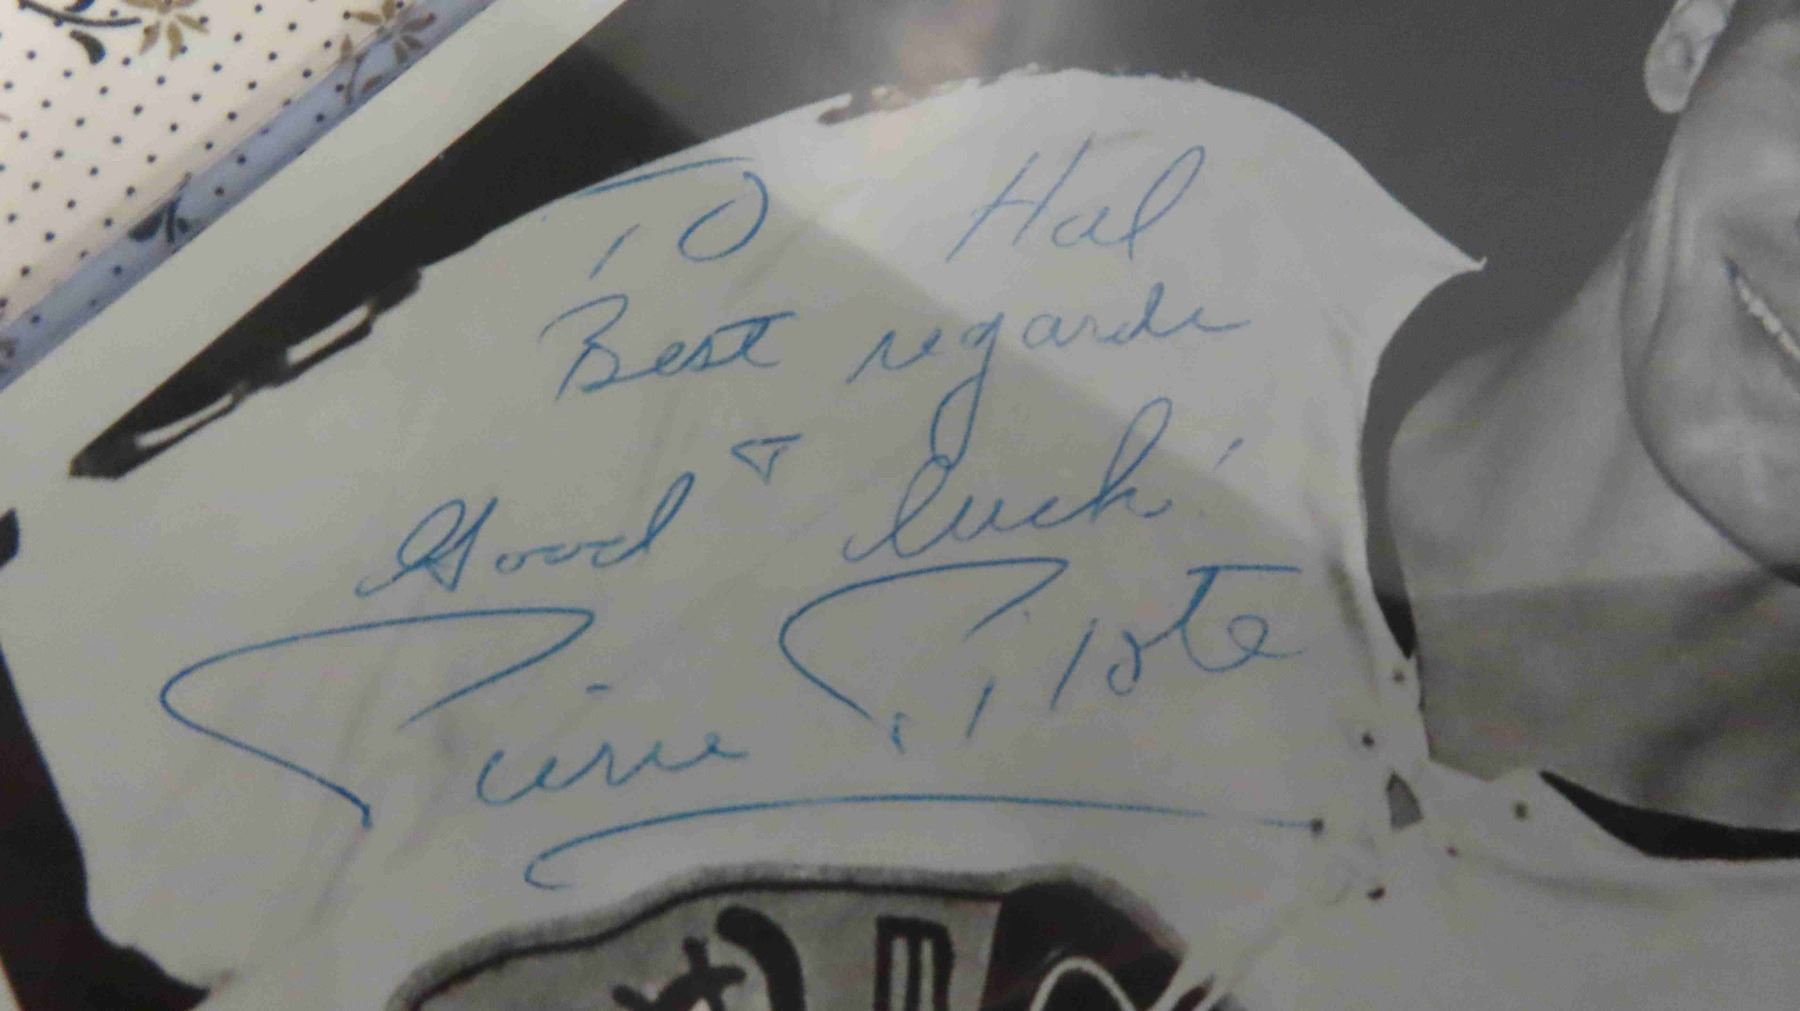 To Hal
Best regards
&
Good luck
Pierre Pilote